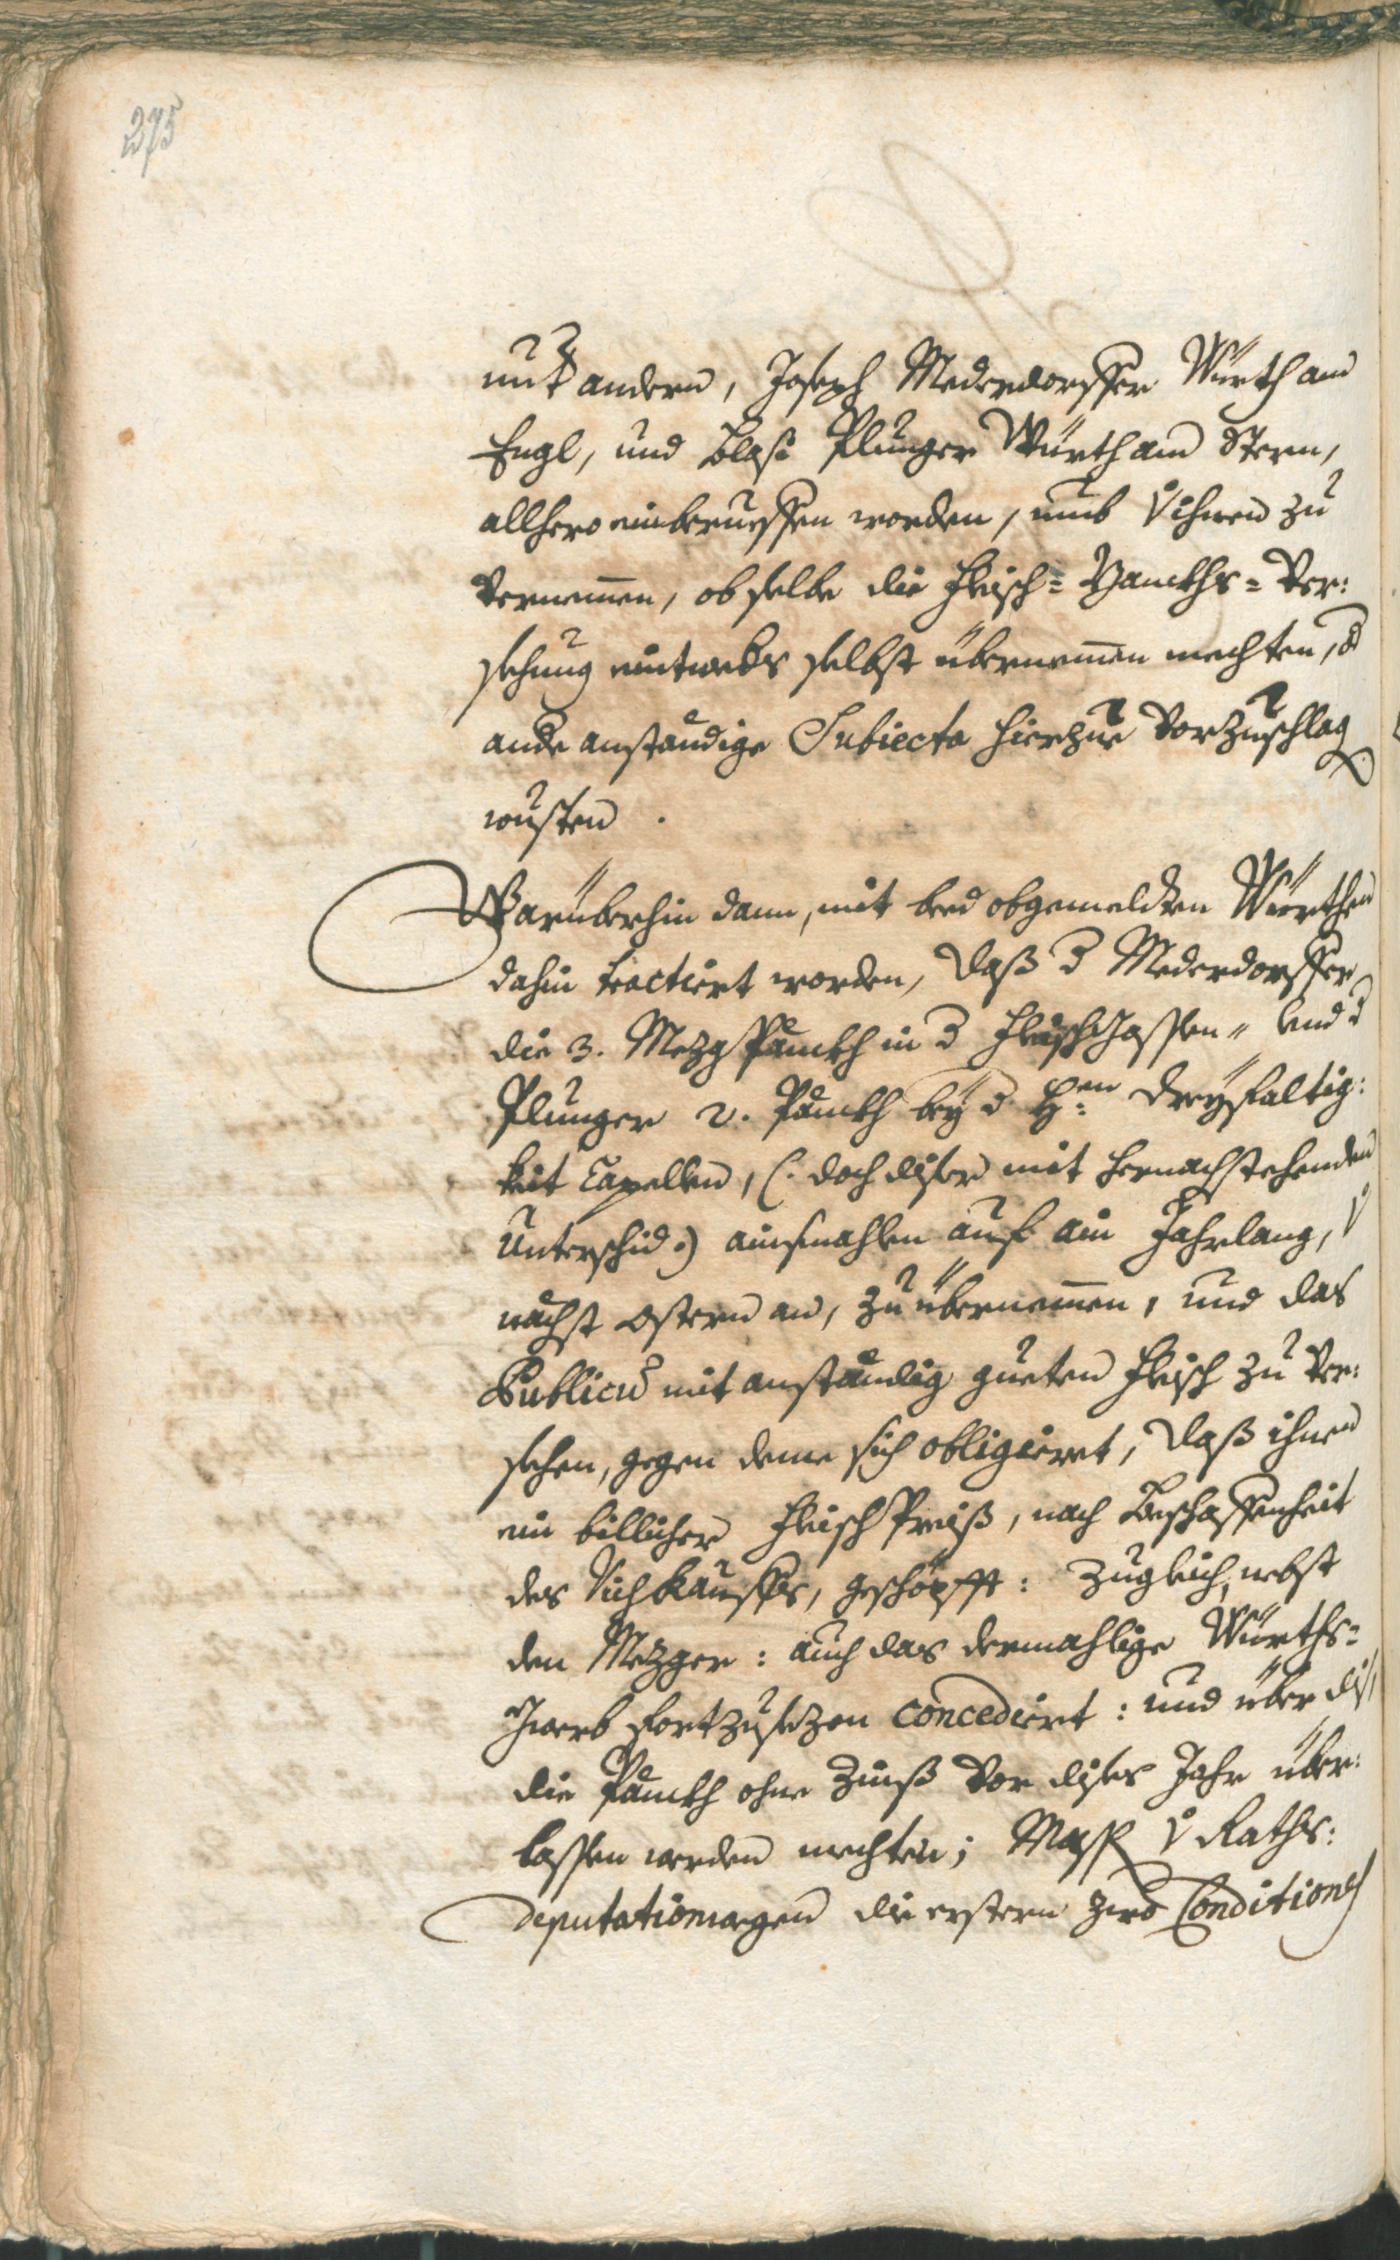 275
unt andern, Joseph Mederdorffer Würth am
Engl, und Blasi Plunger Würth am Stern,
allhero einberueffen worden, umb v ihnen zu
vernemmen, ob selbe die Fleisch= Panckhs= Ver:
sehung eintweders selbst übernemmen mechten, od
ande anständige Subiecta hierzue vorzuschlag
wusten.
Warüberhin dann, mit beed obgemeldten Würthen
dahin tractiert worden, daß d Mederdorffer
die 3. Mezg Pänckh in d Fleischgassen" und d
Plunger 2. Pänckh bey d H:en Dreyfaltig:
keit Capellen, (: doch diser mit hernachstehenden
Unterschid :) ainsmahlen auf ain Jahrlang, v
nächst Ostern an, zu übernemmen, und das
Publicu mit anständig gueten Fleisch zu ver:
sehen, gegen deme sich obligieret, daß ihnen
ein billicher Fleisch Preiß, nach Beschaffenheit
des Vich Kauffs, geschöpfft: zugleich, nebst
den Mezger: auch das dermahlige Würths=
Gwerb fortzusezen concediert: und über diß
die Pänckh ohne Zinß vor dises Jahr über:
lassen werden mechten; Mass v Raths:
Deputationwegen die erstern zwo Conditiones